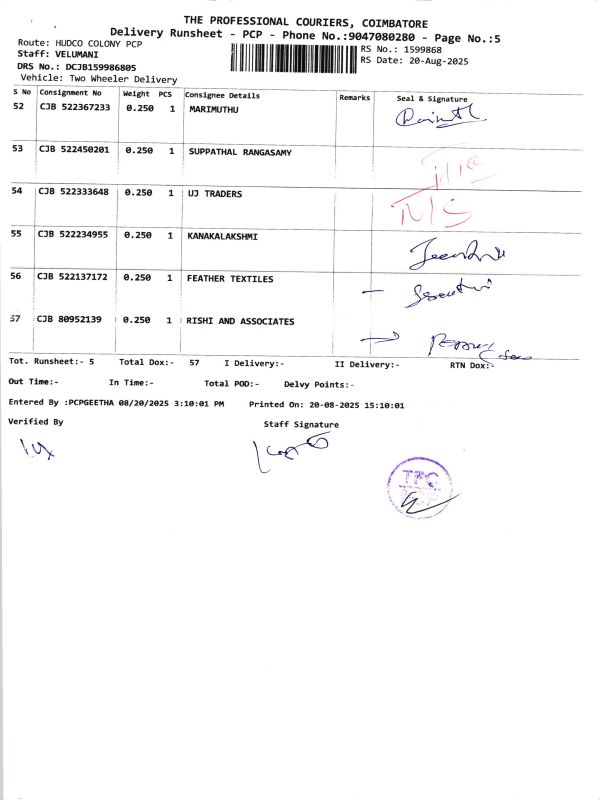 THE PROFESSIONAL COURIERS, COIMBATORE
Delivery Runsheet - PCP - Phone No.:9047080280 - Page No.:5
Route: HUDCO COLONY PCP
RS No.: 1599868
Staff: VELUMANI
RS Date: 20-Aug-2025
DRS No.: DCJB159986805
Vehicle: Two Wheeler Delivery
S No Consignment No Weight PCS Consignee Details Remarks Seal & Signature
52 CJB 522367233 0.250 1 MARIMUTHU
53 CJB 522450201 0.250 1 SUPPATHAL RANGASAMY
54 CJB 522333648 0.250 1 UJ TRADERS
55 CJB 522234955 0.250 1 KANAKALAKSHMI
56 CJB 522137172 0.250 1 FEATHER TEXTILES
57 CJB 80952139 0.250 1 RISHI AND ASSOCIATES
Tot. Runsheet:- 5 Total Dox:- 57 I Delivery:- II Delivery:- RTN Dox:-
Out Time:- In Time:- Total POD:- Delvy Points:-
Entered By :PCPGEETHA 08/20/2025 3:10:01 PM Printed On: 20-08-2025 15:10:01
Verified By Staff Signature
TPC